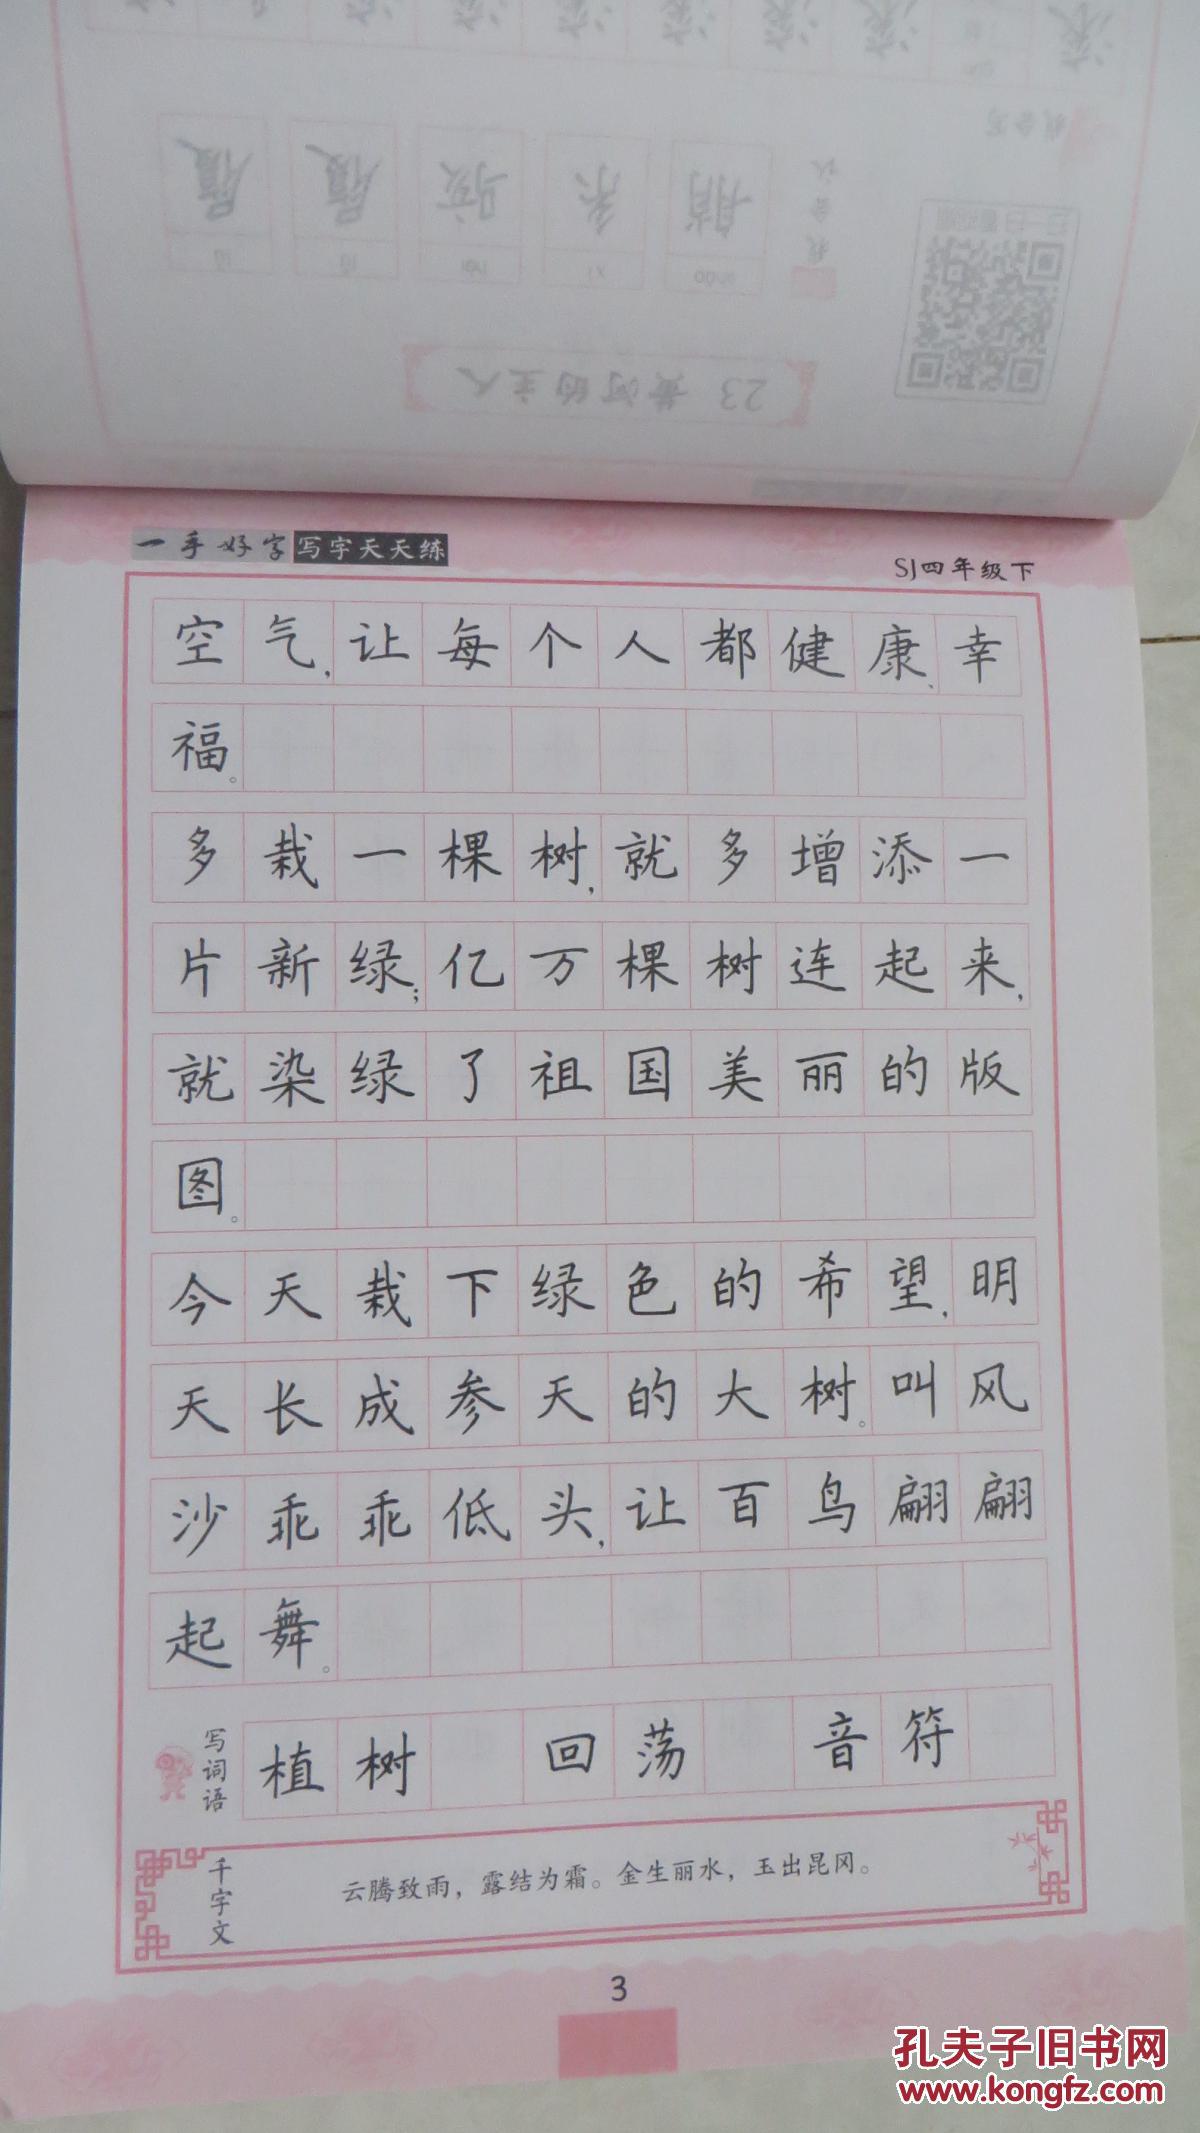 23 黄河的主人
一手好字 写字天天练
SJ四年级下
空气，让每个人都健康、幸
福。
多栽一棵树，就多增添一
片新绿；亿万棵树连起来，
就染绿了祖国美丽的版
图。
今天栽下绿色的希望，明
天长成参天的大树。叫风
沙乖乖低头，让百鸟翩翩
起舞。
写词语
植树 回荡 音符
千字文
云腾致雨，露结为霜。金生丽水，玉出昆冈。
3
孔夫子旧书网
www.kongfz.com